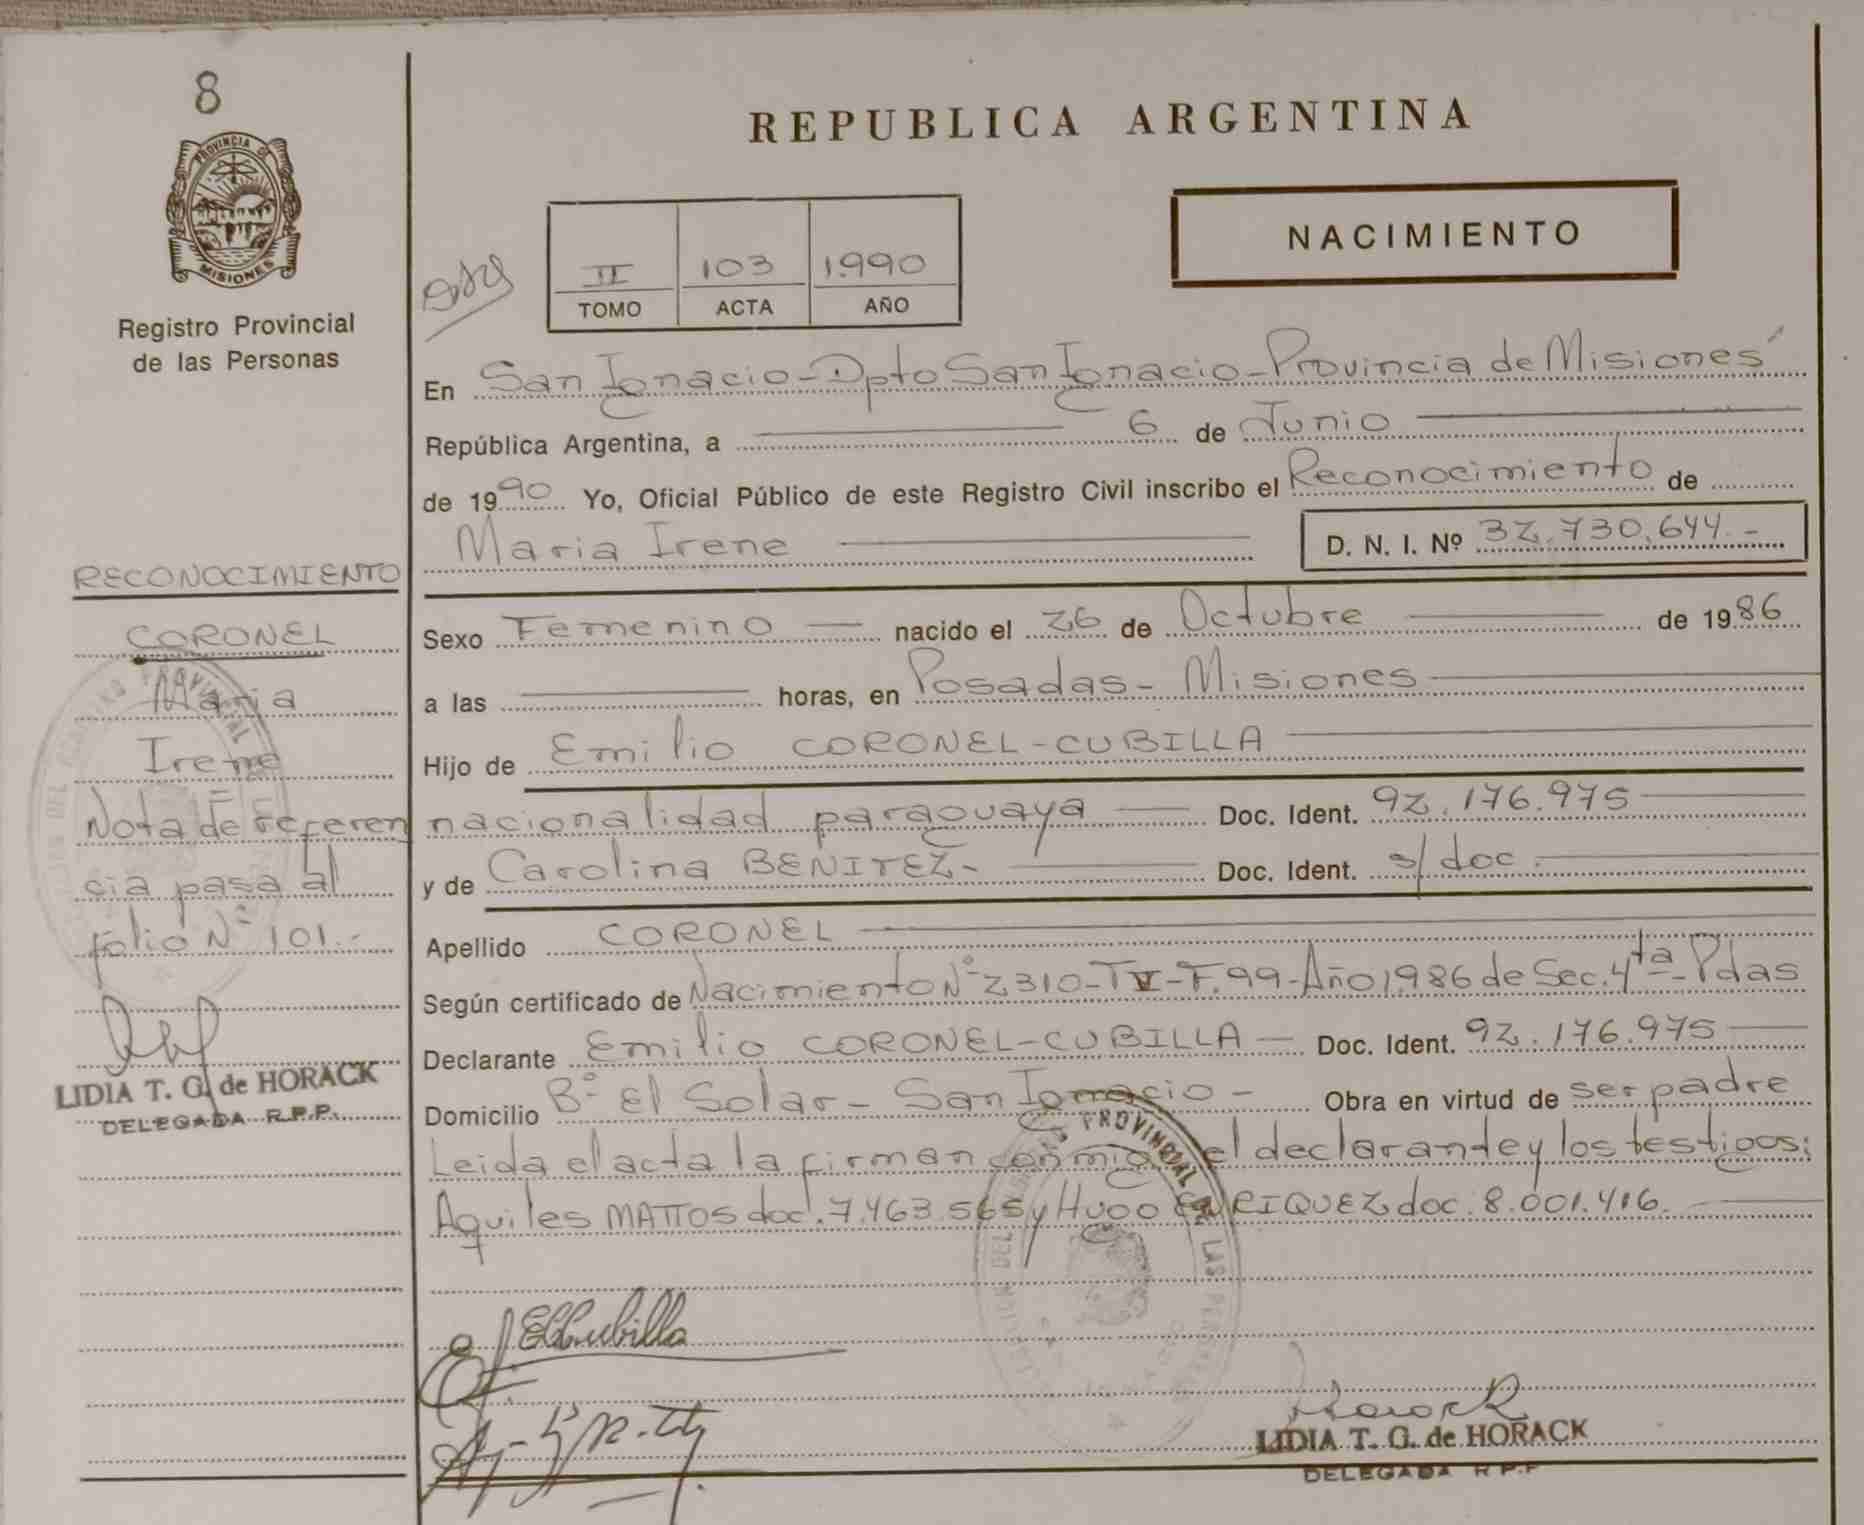 8
PROVINCIA DE
MISIONES
Registro Provincial
de las Personas
RECONOCIMIENTO
CORONEL
Maria
Irene
Nota de referen
cia pasa al
folio Nº 101.-
LIDIA T. G. de HORACK
DELEGADA R.P.P.
REPUBLICA ARGENTINA
NACIMIENTO
II 103 1.990
TOMO ACTA AÑO
En San Ignacio - Dpto San Ignacio - Provincia de Misiones
República Argentina, a 6 de Junio
de 1990 Yo, Oficial Público de este Registro Civil inscribo el Reconocimiento de
Maria Irene D. N. I. Nº 32.730.644.-
Sexo Femenino nacido el 26 de Octubre de 1986
a las horas, en Posadas - Misiones
Hijo de Emilio CORONEL-CUBILLA
nacionalidad paraguaya Doc. Ident. 92.176.975
y de Carolina BENITEZ- Doc. Ident. s/doc.
Apellido CORONEL
Según certificado de Nacimiento Nº 2310-T V-F.99-Año 1.986 de Sec. 4ta - Pdas
Declarante Emilio CORONEL-CUBILLA Doc. Ident. 92.176.975
Domicilio Bº El Solar - San Ignacio - Obra en virtud de ser padre
Leida el acta la firman conmigo el declarante y los testigos:
Aquiles MATTOS doc. 7.463.565 y Hugo ENRIQUEZ doc. 8.001.416.
LIDIA T. G. de HORACK
DELEGADA R P.P